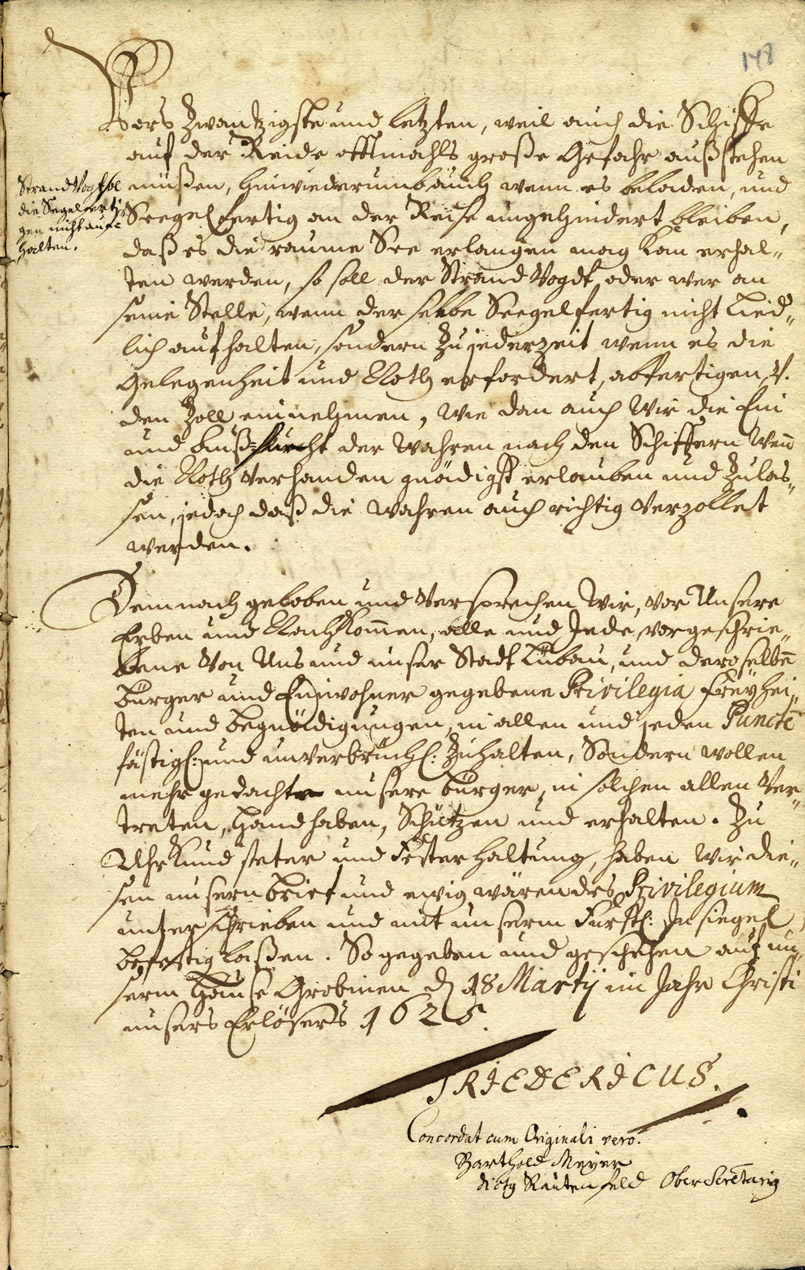 148
Vors Zwantzigste und letzten, weil auch die Schiffe
auf der Reide offtmahls große Gefahr außstehen
müßen, hinwiederumb auch wenn es beladen, und
Seegelfertig an der Reise ungehindert bleiben,
daß es die raume See erlangen mag kan erhal„
ten werden, so soll der Strand Vogdt, oder wer an
seine Stelle, wenn der selbe Seegelfertig nicht lied„
lich aufhalten, sondern Zu jederzeit wenn es die
Gelegenheit und Noth erfordert, abfertigen, V.
den Zoll einnehmen, wie dan auch Wir die Ein
und Auß der Wahren nach den Schiffern wen̄
die Noth verhanden gnädigst erlauben und Zulas„
sen, jedoch daß die Wahren auch richtig verzollet
werden.
Strand Vogt sol
die Segelferti„
gen nicht auf„
halten.
Demnach geloben und Versprechen Wir, vor Unsere
Erben und Nachkom̄en, alle und Jede, vorgeschrie„
bene Von Uns und unser Stadt Libau, und deroselben̄
Bürger und Einwohner gegebene Privilegia Freyhei„
ten und begnädigungen, in allen und jeden Puncte̅
fästigl: und unverbrüchl: Zuhalten, Sondern wollen
mehrgedachte unsere bürger, in solchen allen Ver„
treten, Handhaben, Schützen und erhalten. Zu
Uhrkund steter und Fester haltung, haben Wir die„
sen unsern brief und ewig wärendes Privilegium
unterschrieben und mit unserm Fürstl: Insiegel
befestig laßen. So gegeben und geschehen auf un„
serm Hause Grobinen d 18 Martij im Jahr Christi
unsers Erlösers 1625.
FRIEDERICUS.
Concordat cum Originali vero.
Barthold Meyer
dictg Rautenfeld Ober Secretarig